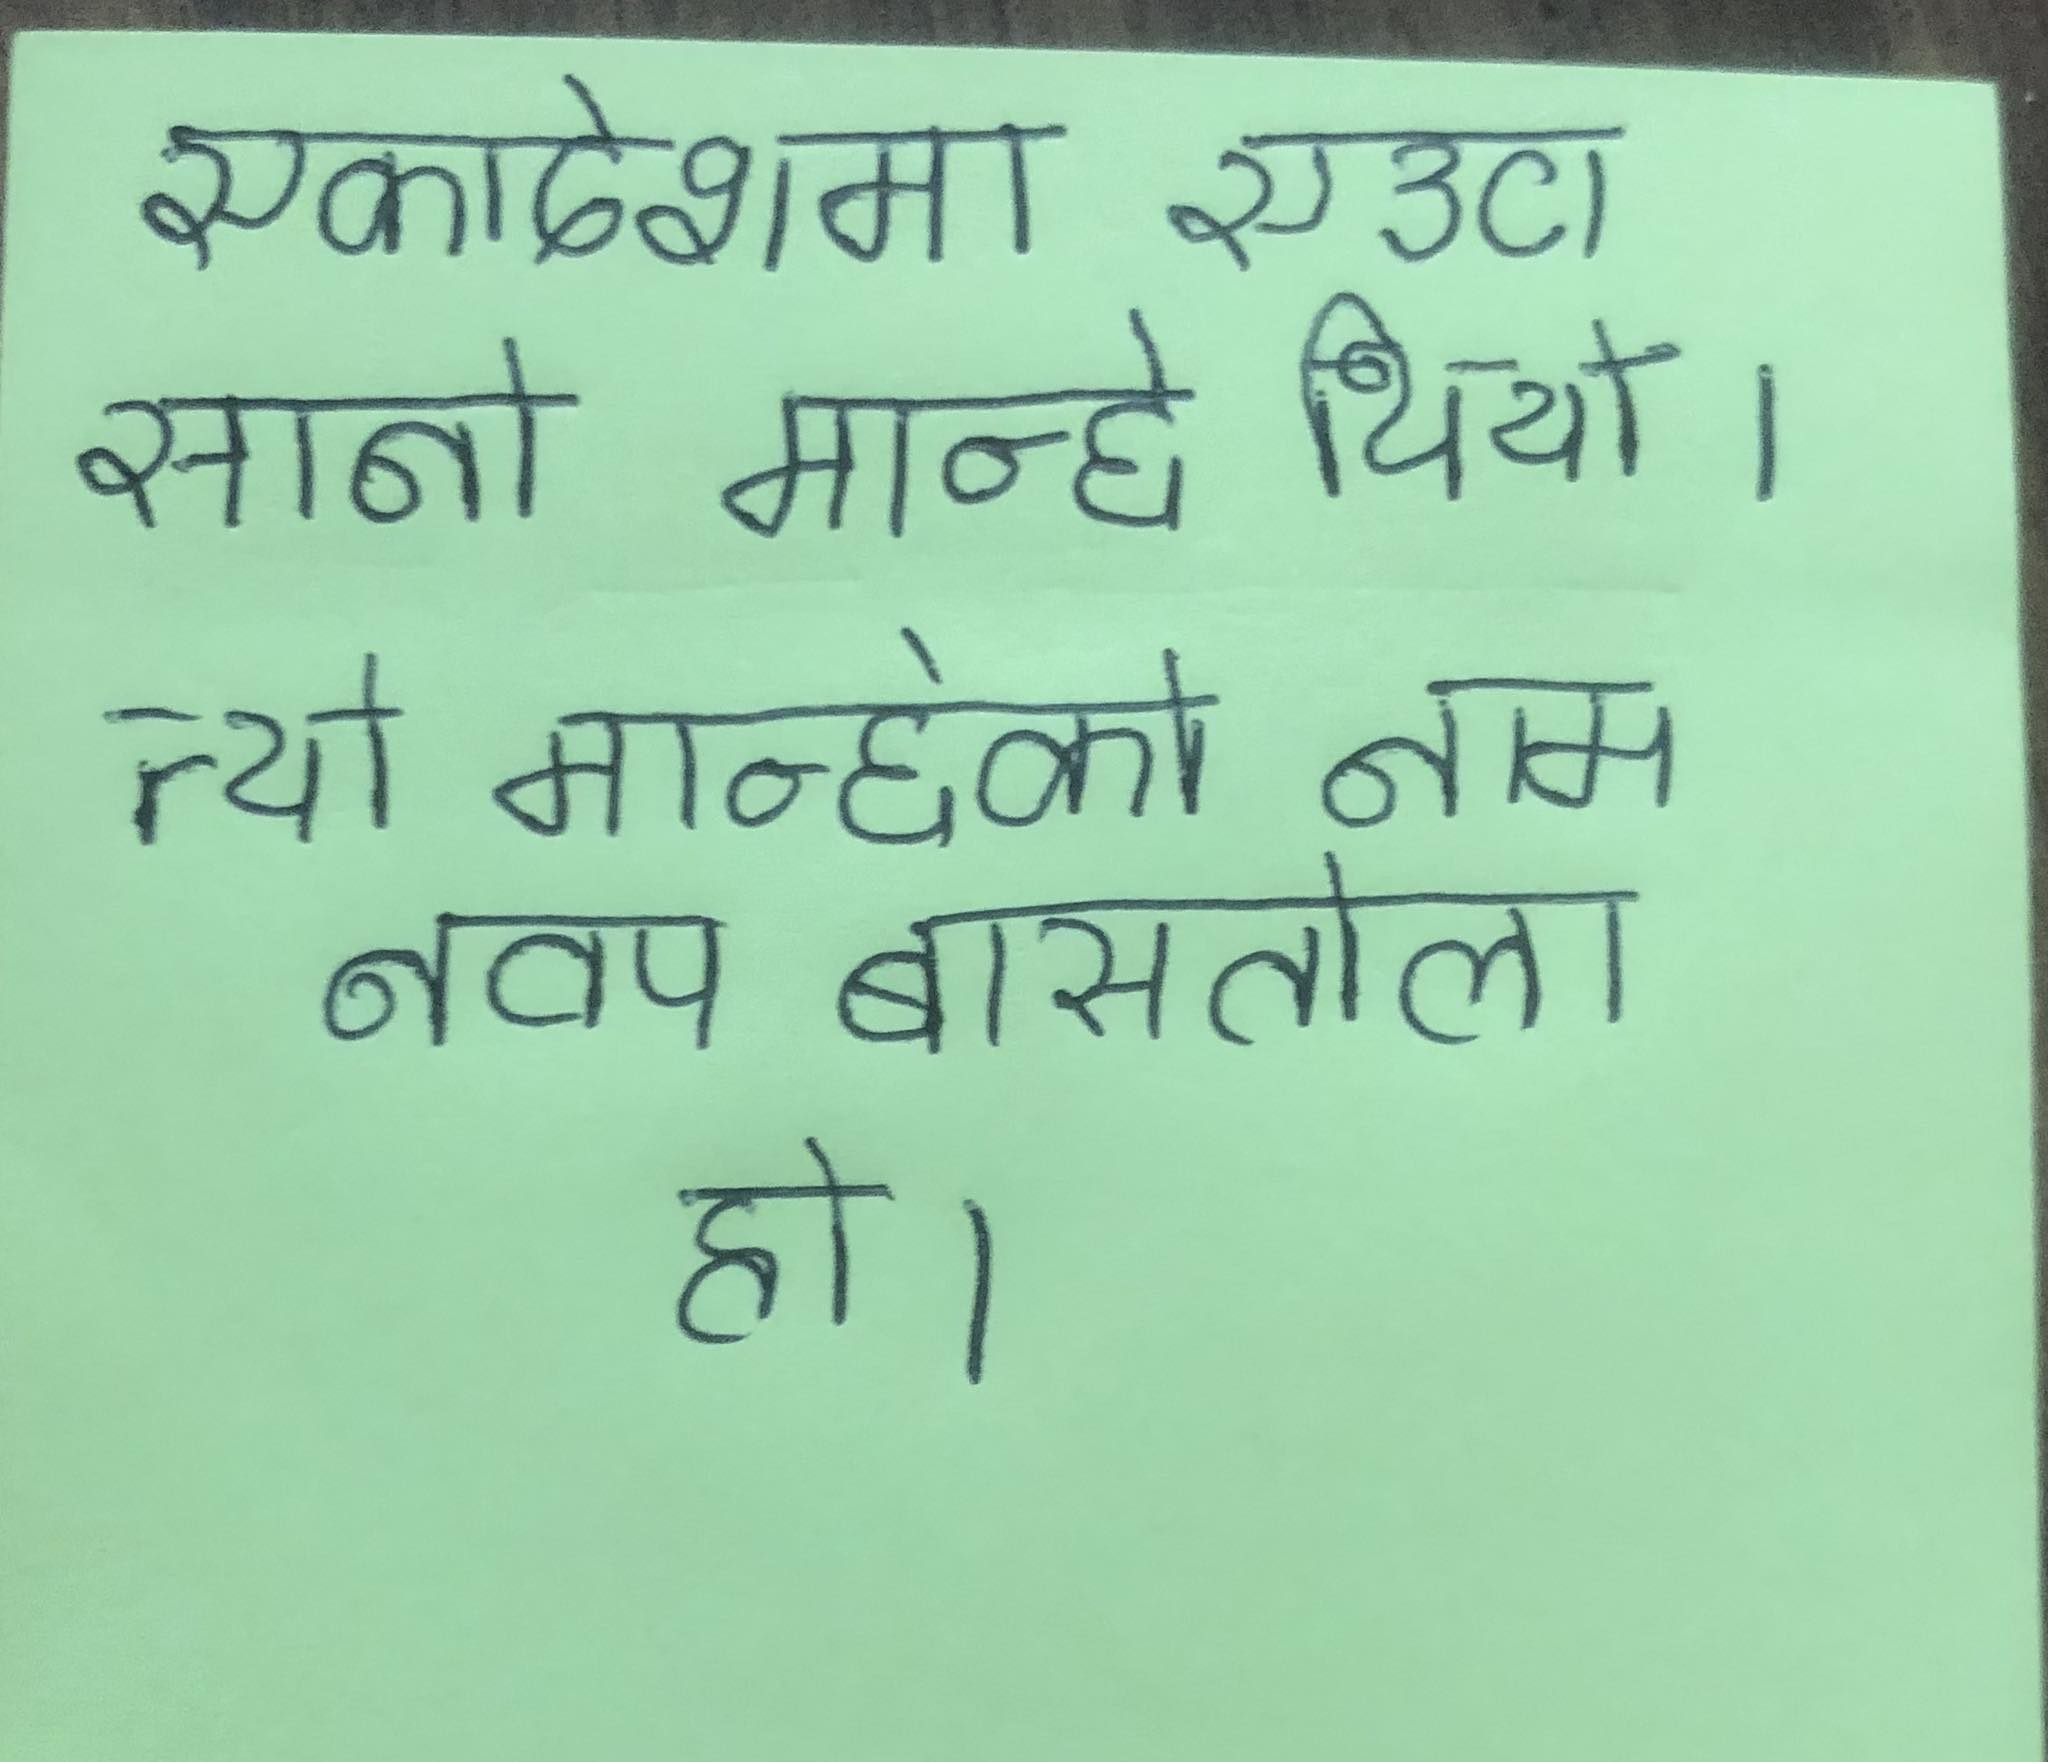 एकादेशमा एउटा
सानो मान्छे थियो ।
त्यो मान्छेको नाम
नवप बासतोला
हो ।